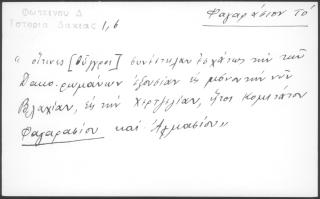 Φωτεινοῦ Δ
Ἱστορία Δακίας 1,6
Φαγαράσιον Τὸ
« οἵτινες [Οὖγγροι] συνέστειλαν ἐσχάτως τὴν τῶν
Δακο-ρωμάνων ἐξουσίαν εἰς μόνον τὴν νῦν
Βλαχίαν, εἰς τὴν Χερτζεγίαν, ἤτοι κομιτάτον
Φαγαρασίου καὶ Ἀλμασίου »